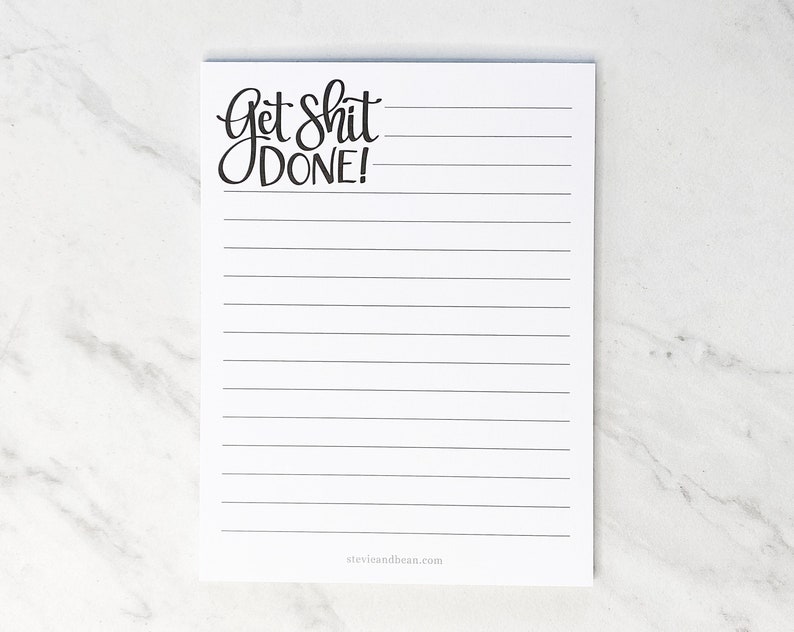 Get Shit
DONE!
stevieandbean.com